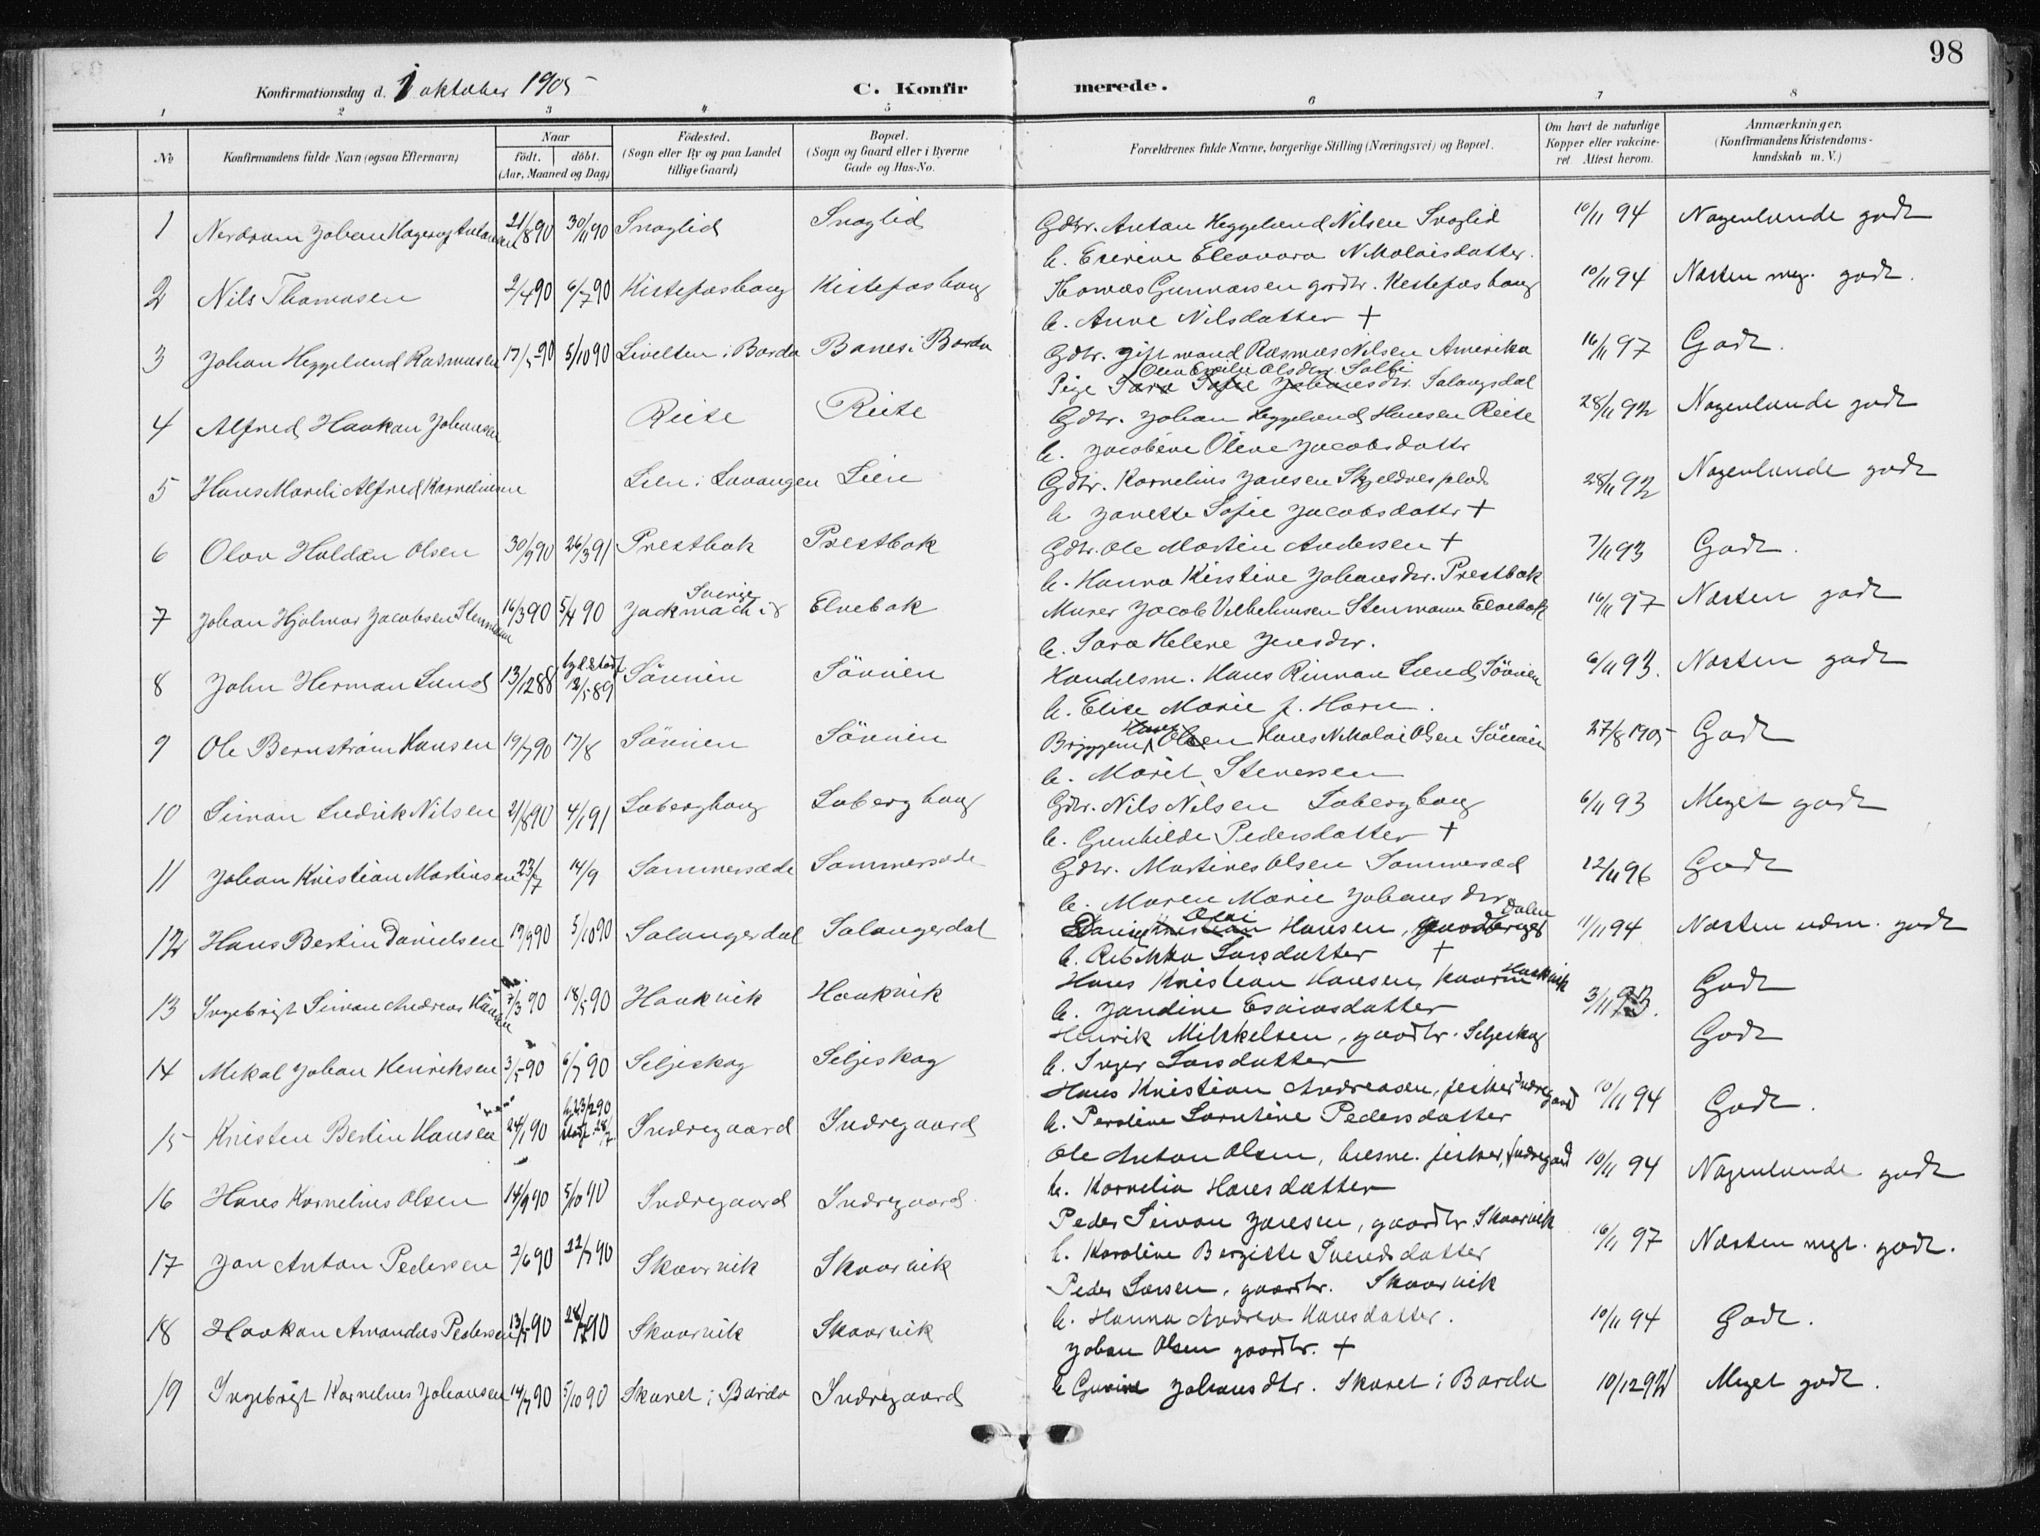 98
Konfirmationsdag d. 1 oktober 1905 C. Konfirmerede.
1 2 3 4 5 6 7 8
No
Konfirmandens fulde Navn (ogsaa Efternavn)
Naar
født. døbt.
(Aar, Maaned og Dag)
Fødested.
(Sogn eller By og paa Landet
tillige Gaard)
Bopæl.
(Sogn og Gaard eller i Byerne
Gade og Hus-No.
Forældrenes fulde Navne, borgerlige Stilling (Næringsvei) og Bopæl.
Om havt de naturlige
Kopper eller vakcine-
ret Attest herom.
Anmærkninger,
(Konfirmandens Kristendoms-
kundskab m. V.)
1 Johan 21/8 90 30/11 90 Snoglid Snoglid Gdbr. Anton Heggelund Nilsen Snoglid 10/11 94 Nogenlunde godt
h. Eleonora Nikolaisdatter.
2 Nils Thomasen 2/4 90 6/7 90 Kistefoshaug Kistefoshaug Thomas Gunnarsen grdbr. Kistefoshaug 10/11 94 Næsten meg. godt.
h. Anne Nilsdatter +
3 Johan Heggelund Rasmusen 17/5 90 5/10 90 Livelten i Bardo Bones i Bardo Gdbr. gift mand Rasmus Nilsen Amerika 16/11 97 Godt.
Pige Sara Sofie Johansdtr. Salangsdal
4 Alfred Haakon Johansen Reite Reite Gdbr. Johan Heggelund Hansen Reite 28/11 92 Nogenlunde godt
h. Jacobine Oline Jacobsdattr
5 Hans Alfred Kornelinsen Lien i Lavangen Lien Gdbr. Kornelius Jansen Skjeldnesplads 28/11 92 Nogenlunde godt
h Janette Sofie Jacobsdattr +
6 Olav Haldan Olsen 30/9 90 26/3 91 Prestbak Prestbak Gdbr. Ole Martin Andersen + 7/11 93 Godt.
h. Hanna Kirstine Johansdtr. Prestbak
7 Johan Hjalmar Jacobsen Stenmann 16/3 90 5/4 90 Jockmock i Sverige Elvebak Murer Jacob Vilhelmsen Stenmann Elvebak 16/11 97 Næsten godt
h. Sara Helene Jensdtr.
8 John Herman Lund 13/12 88 Söveien Sövien Handelsm. Hans Rinman Lund, Sövien 6/11 93. Næsten godt
h. Elise Marie f. Horn.
9 Ole Bernstrøm Hansen 19/7 90 17/8 Sövien Sövien Hans Nikolai Olsen Sövien 27/8 1905 Godt
h. Marit Stenersen
10 Simon Fredrik Nilsen 21/8 90 4/1 91 Løberghaug Løberghaug Gdbr. Nils Nilsen Løberghaug 6/11 93 Meget godt
h. Gunhilde Pedersdatter +
11 Johan Kristian Martinsen 23/7 14/9 Sommersæde Sommersæde Gdbr. Martines Olsen Sommersæd 12/11 96 Godt
h. Maren Marie Johansdtr
12 Hans Bertin Danielsen 19/9 90 5/10 90 Salangerdal Salangerdal Hansen, 11/11 94 Næsten udm. godt
h. Larsdatter +
13 Ingebrigt Simon Andreas Hansen 7/3 90 18/5 90 Haakvik Haakvik Hans Kristian Hansen Haakvik 3/11 93. Godt
h. Jandine Esaiasdatter
14 Mikal Johan Henriksen 3/5 90 6/7 90 Seljeskog Seljeskog Henrik Mikkelsen, gaardbr. Seljeskog Godt
h. Inger Larsdatter
15 Kristen Bertin Hansen 24/1 90 Indregaard Indregaard Hans Kristian Andreasen, fisker Indregaard 10/11 94 Godt.
h. Peroline Lorntine Pedersdatter
16 Hans Kornelius Olsen 14/9 90 5/10 90 Indregaard Indregaard Ole Anton Olsen, fisker, Indregaard 10/11 94 Nogenlunde godt
h. Kornelia Hansdatter
17 Jan Anton Pedersen 2/6 90 22/7 90 Skaarvik Skaarvik Peder Simon Jansen, gaardbr. Skaarvik 16/11 97 Næsten megt. godt.
h. Karoline Bergitte Svendsdatter
18 Haakon Amandus Pedersen 13/5 90 28/7 90 Skaarvik Skaarvik Peder Larsen, gaardbr. Skaarvik 10/11 94 Godt.
h. Hanna Andrea Hansdatter.
19 Ingebrigt Kornelius Johansen 14/7 90 5/10 90 Skaret i Bardo Indregaard Johan Olsen gaardbr. + 10/12 92 Meget godt.
h Johansdtr. Skaret i Bardo